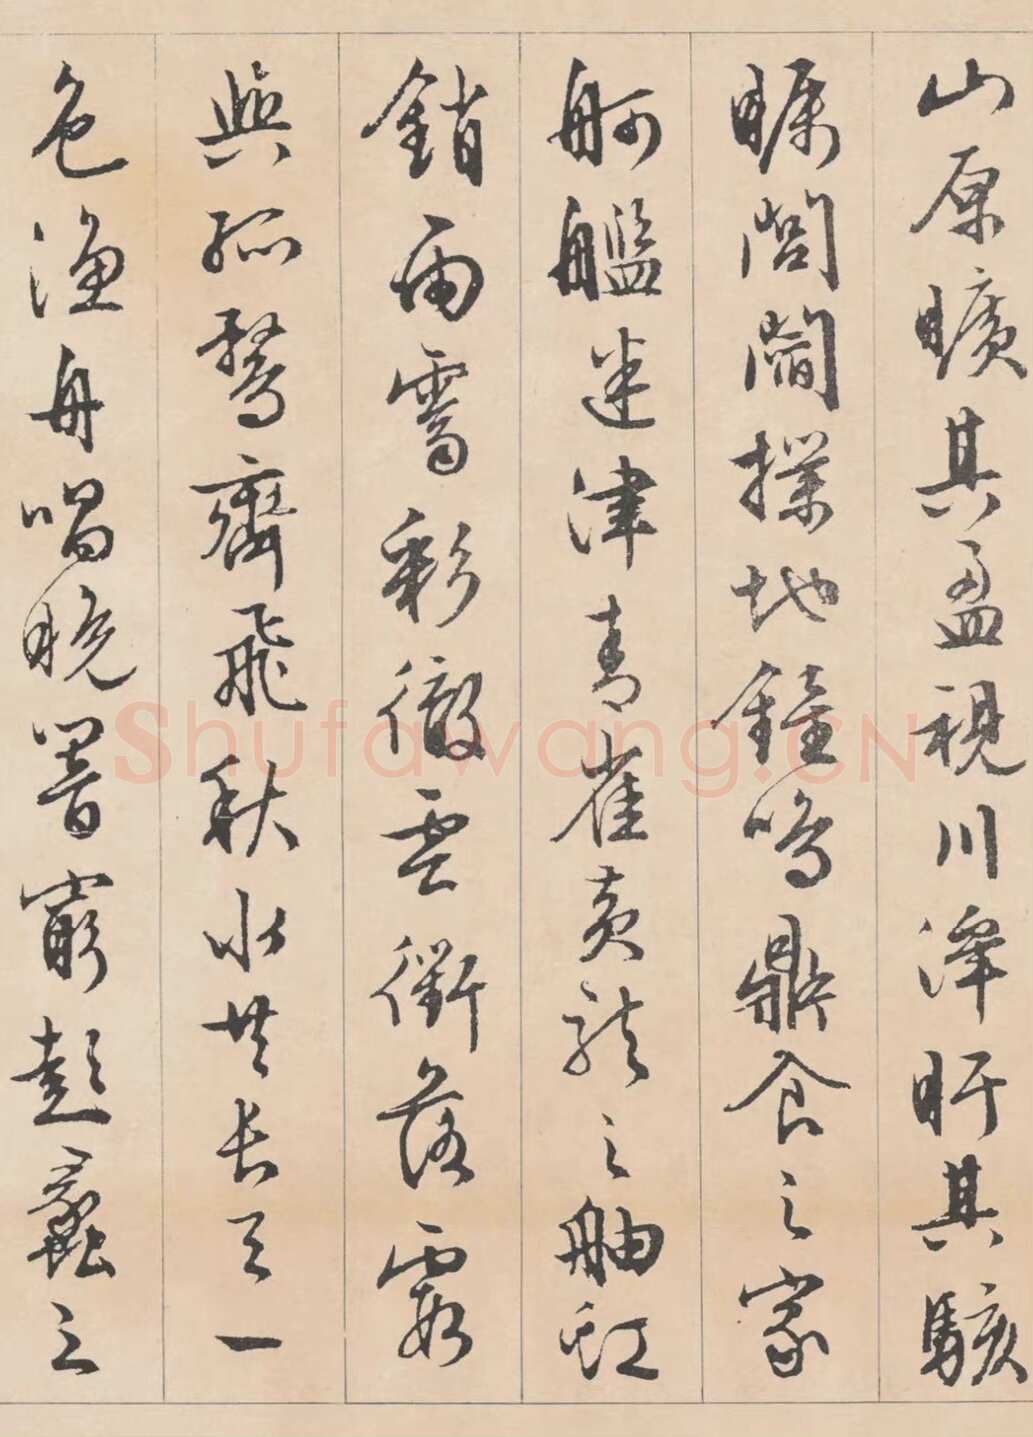 山原曠其盈視川澤盱其駭
矚閭閻撲地鐘鳴鼎食之家
舸艦迷津青雀黃龍之舳虹
銷雨霽彩徹雲衢落霞
與孤鶩齊飛秋水共長天一
色漁舟唱晚響窮彭蠡之
Shufawang.CN